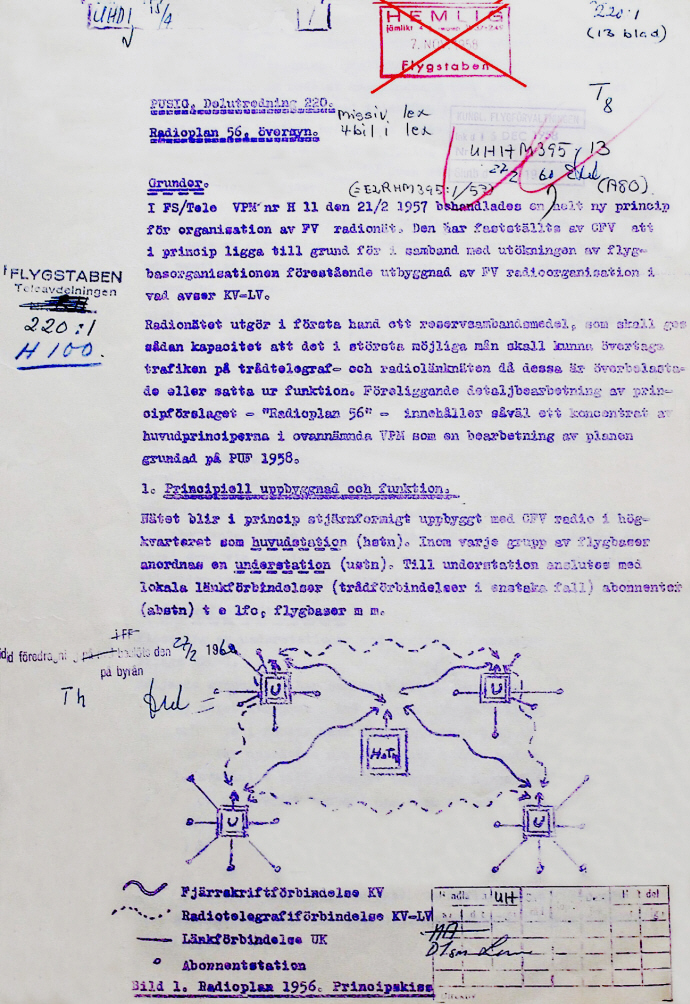 UHDI 15/4
HEMLIG
7. NOV 1958
Flygstaben
220:1
(13 blad)
T8
PUSIG. Delutredning 220.
Radioplan 56, översyn.
missiv lex
4 bil i lex
UHHM395:13
22/2 60
(=E2RHM395:1/57)
(A80)
Grunder.
I FS/Tele VPM nr H 11 den 21/2 1957 behandlades en helt ny princip
för organisation av FV radionät. Den har fastställts av CFV att
i princip ligga till grund för i samband med utökningen av flyg-
basorganisationen förestående utbyggnad av FV radioorganisation i
vad avser KV-LV.
FLYGSTABEN
Teleavdelningen
220:1
H 100.
Radionätet utgör i första hand ett reservsambandsmedel, som skall ges
sådan kapacitet att det i största möjliga mån skall kunna övertaga
trafiken på trådtelegraf- och radiolänknäten då dessa är överbelasta-
de eller satta ur funktion. Föreliggande detaljbearbetning av prin-
cipförslaget - "Radioplan 56" - innehåller såväl ett koncentrat av
huvudprinciperna i ovannämnda VPM som en bearbetning av planen
grundad på PUF 1958.
1. Principiell uppbyggnad och funktion.
Nätet blir i princip stjärnformigt uppbyggt med CFV radio i hög-
kvarteret som huvudstation (hstn). Inom varje grupp av flygbaser
anordnas en understation (ustn). Till understation anslutes med
lokala länkförbindelser (trådförbindelser i enstaka fall) abonnenter
(abstn) t e lfc, flygbaser m m.
den 22/2 196
på byrån
Th
U
U
Hstn
U
U
Fjärrskriftförbindelse KV
Radiotelegrafiförbindelse KV-LV
Länkförbindelse UK
Abonnentstation
UH
Bild 1. Radioplan 1956. Principskiss